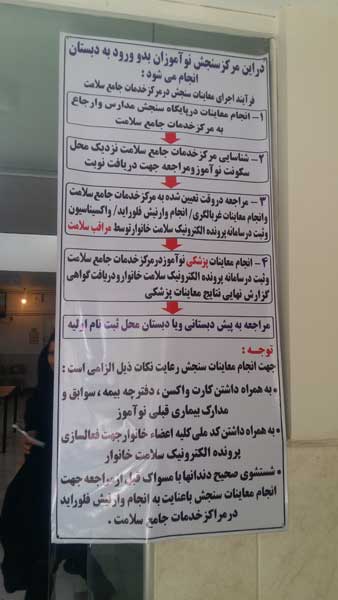 دراین مرکزسنجش نوآموزان بدو ورود به دبستان
انجام می شود :
فرآیند اجرای معاینات سنجش درمرکز خدمات جامع سلامت
۱- انجام معاینات درپایگاه سنجش مدارس وارجاع
به مرکز خدمات جامع سلامت
۲- شناسایی مرکز خدمات جامع سلامت نزدیک محل
سکونت نوآموز ومراجعه جهت دریافت نوبت
۳- مراجعه دروقت تعیین شده به مرکز خدمات جامع سلامت
وانجام معاینات غربالگری/ انجام وارنیش فلوراید/ واکسیناسیون
وثبت درسامانه پرونده الکترونیک سلامت خانوار توسط مراقب سلامت
۴- انجام معاینات پزشکی نوآموز درمرکز خدمات جامع سلامت
وثبت درسامانه پرونده الکترونیک سلامت خانوار ودریافت گواهی
گزارش نهایی نتایج معاینات پزشکی
مراجعه به پیش دبستانی ویا دبستان محل ثبت نام اولیه
توجه :
جهت انجام معاینات سنجش رعایت نکات ذیل الزامی است :
• به همراه داشتن کارت واکسن ، دفترچه بیمه ، سوابق و
مدارک بیماری قبلی نوآموز
• به همراه داشتن کد ملی کلیه اعضاء خانوار جهت فعالسازی
پرونده الکترونیک سلامت خانوار
• شستشوی صحیح دندانها با مسواک قبل از مراجعه جهت
انجام معاینات سنجش باعنایت به انجام وارنیش فلوراید
درمراکز خدمات جامع سلامت .